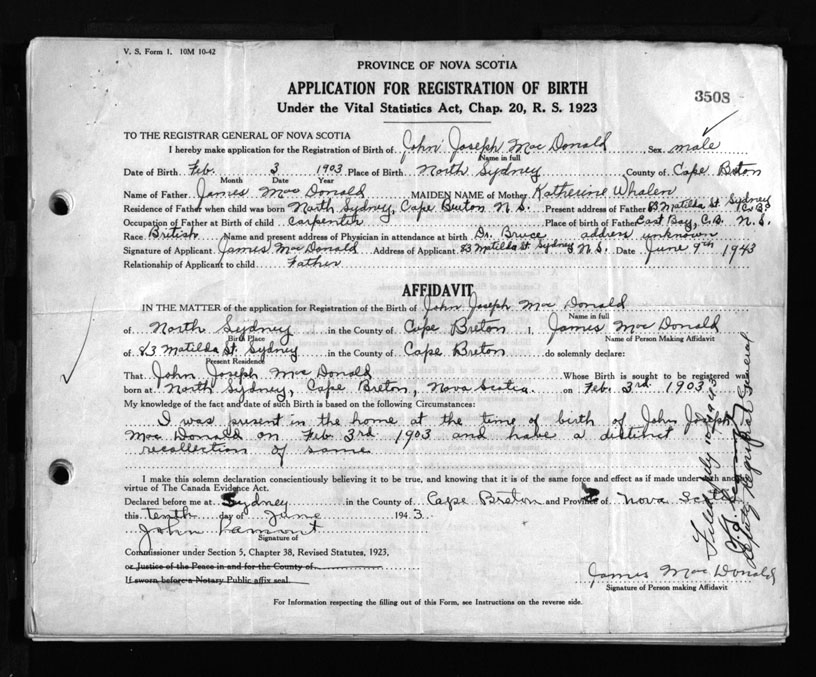 V. S. Form 1. 10M 10-42
PROVINCE OF NOVA SCOTIA
APPLICATION FOR REGISTRATION OF BIRTH
3508
Under the Vital Statistics Act, Chap. 20, R. S. 1923
TO THE REGISTRAR GENERAL OF NOVA SCOTIA
I hereby make application for the Registration of Birth of John Joseph Mac Donald, Sex male
Name in full
Date of Birth Feb. 3 1903 Place of Birth North Sydney County of Cape Breton
Month Date Year
Name of Father James Mac Donald MAIDEN NAME of Mother Katherine Whalen
Residence of Father when child was born North Sydney, Cape Breton N.S. Present address of Father Matilda St. Sydney
Occupation of Father at Birth of child Carpenter Place of birth of Father East Bay, C.B. N.S.
Race British Name and present address of Physician in attendance at birth Dr. Bruce address unknown
Signature of Applicant James Mac Donald Address of Applicant 83 Matilda St Sydney N.S. Date June 9th 1943
Relationship of Applicant to child Father
AFFIDAVIT
IN THE MATTER of the application for Registration of the Birth of John Joseph Mac Donald
Name in full
of North Sydney in the County of Cape Breton I, James Mac Donald
Birth Place Name of Person Making Affidavit
of 83 Matilda St. Sydney in the County of Cape Breton do solemnly declare:
Present Residence
That John Joseph Mac Donald Whose Birth is sought to be registered was
born at North Sydney, Cape Breton, Nova Scotia on Feb. 3rd 1903
My knowledge of the fact and date of such Birth is based on the following Circumstances:
I was present in the home at the time of birth of John Joseph
Mac Donald on Feb 3rd 1903 and have a distinct
recollection of same
I make this solemn declaration conscientiously believing it to be true, and knowing that it is of the same force and effect as if made under oath and
virtue of The Canada Evidence Act.
Declared before me at Sydney in the County of Cape Breton and Province of Nova Scotia
this tenth day of June 1943.
John Lamont
Signature of
Commissioner under Section 5, Chapter 38, Revised Statutes, 1923,
or Justice of the Peace in and for the County of
If sworn before a Notary Public affix seal
James Mac Donald
Signature of Person making Affidavit
For Information respecting the filling out of this Form, see Instructions on the reverse side.
Filed July 10, 1943
Deputy Registrar General